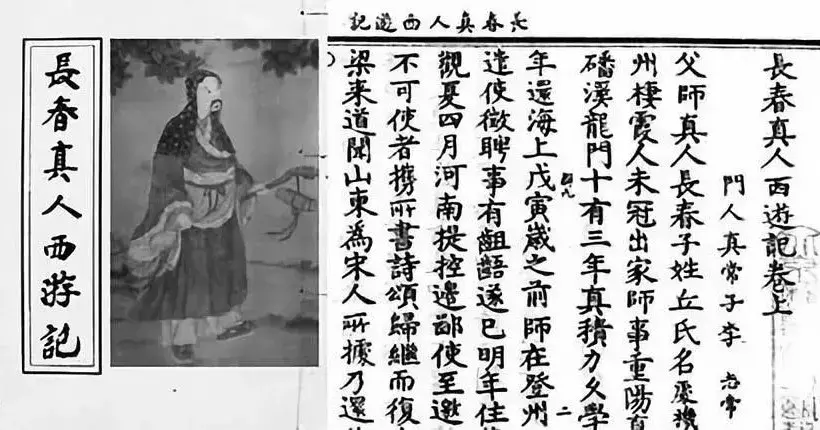 長春真人西游記
長春真人西遊記
長春真人西遊記卷上
門人真常子李 志常
父師真人長春子姓丘氏名處機
州棲霞人未冠出家師事重陽真
磻溪龍門十有三年真積力久學
二
年還海上戊寅歲之前師在登州
遣使徵聘事有齟齬遂已明年住
觀夏四月河南提控邊鄙使至邀
不可使者攜所書詩頌歸繼而復
梁来道聞山東為宋人所據乃還